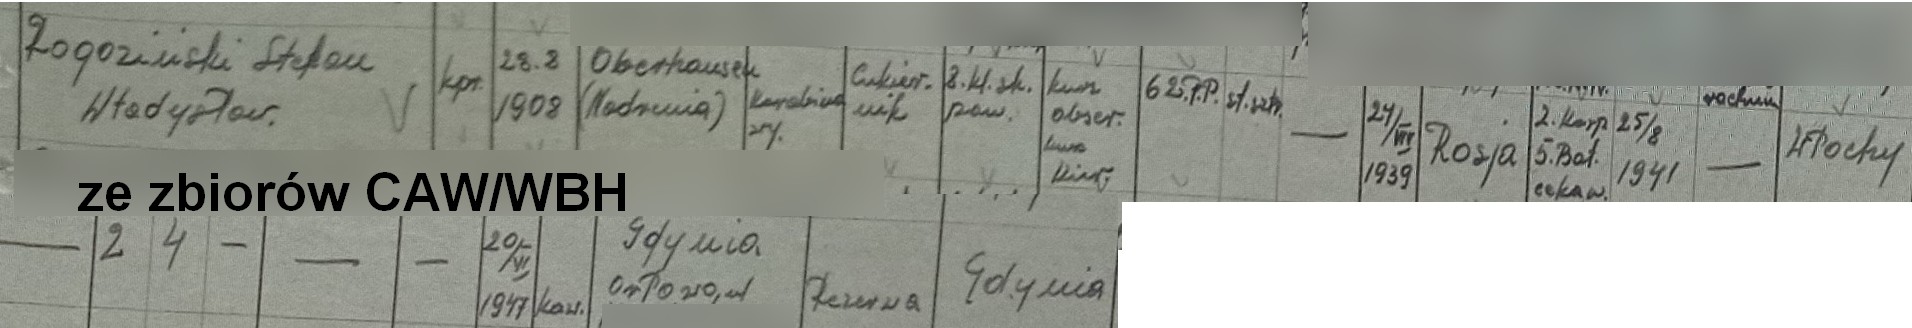 Rogoziński Stefan
Władysław.
kpr.
28.8
1908
Oberhausen
(Nadrenia)
Cukier-
nik
8.kl.sk.
pow.
kurs
obser.
kurs
62 P.P.
st. sztr.
—
24/VIII
1939
Rosja
2. Korp
5. Bat.
25/8
1941
—
Włochy
ze zbiorów CAW/WBH
— 2 4 — — —
20/VI
1947
kaw.
Gdynia
Orłowo, ul
Rezerwa
Gdynia